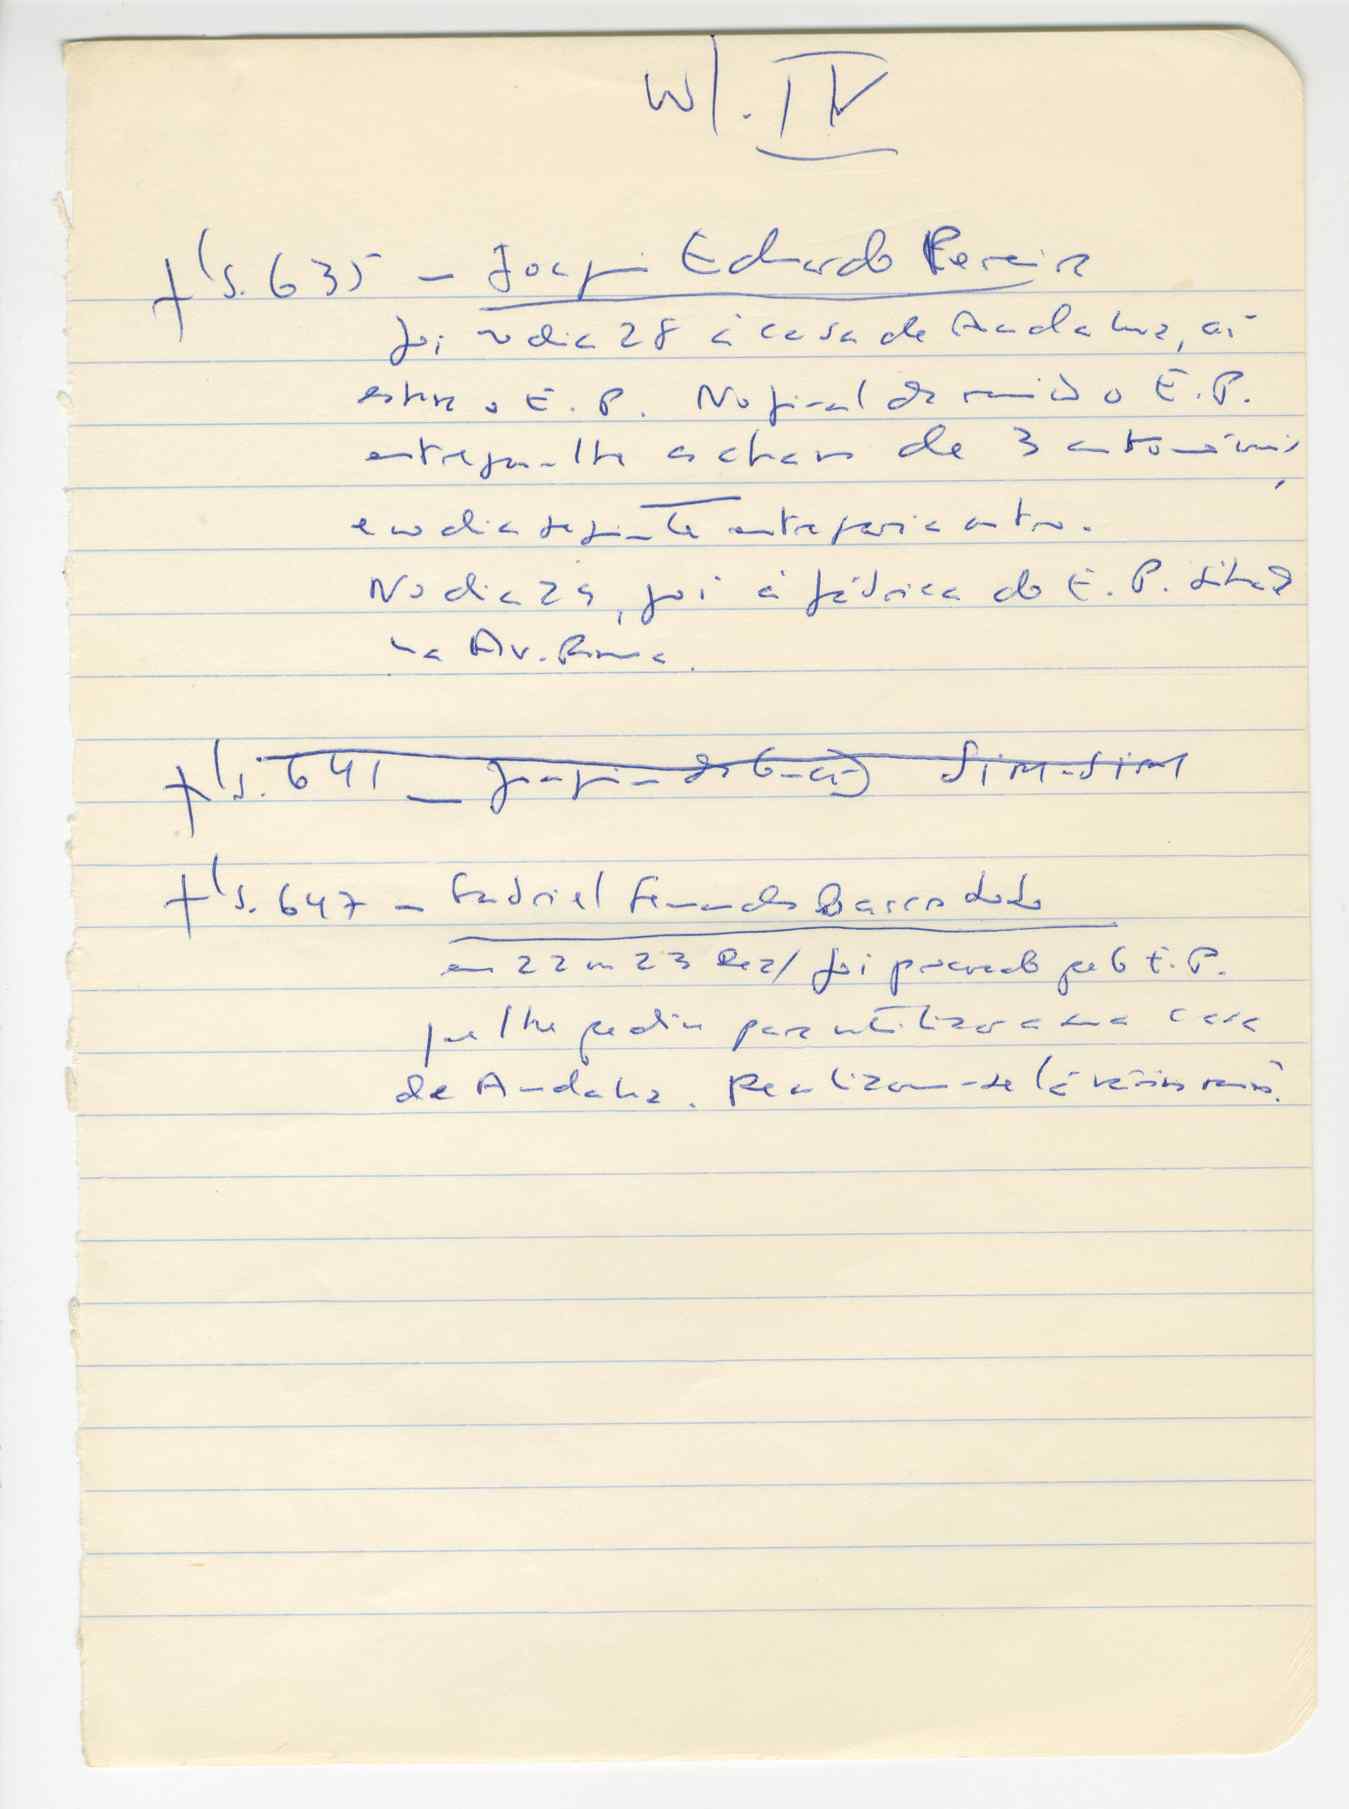 Vol. IV
fls. 635 - Joaquim Eduardo Pereira
foi no dia 28 à casa de Andaluz, aí
esteve o E. P. No final da reunião o E. P.
entregou-lhe as chaves de 3 automóveis,
e no dia seguinte entregaria outro.
No dia 29, foi à fábrica do E. P. situada
na Av. Roma.
fls. 641 - Joaquim da Conceição Sim-Sim
fls. 647 - Gabriel Fernandes Barros Lobo
em 22 ou 23 Dez/ foi procurado pelo E. P.
que lhe pediu para utilizar a sua casa
de Andaluz. Realizaram-se lá várias reuniões.